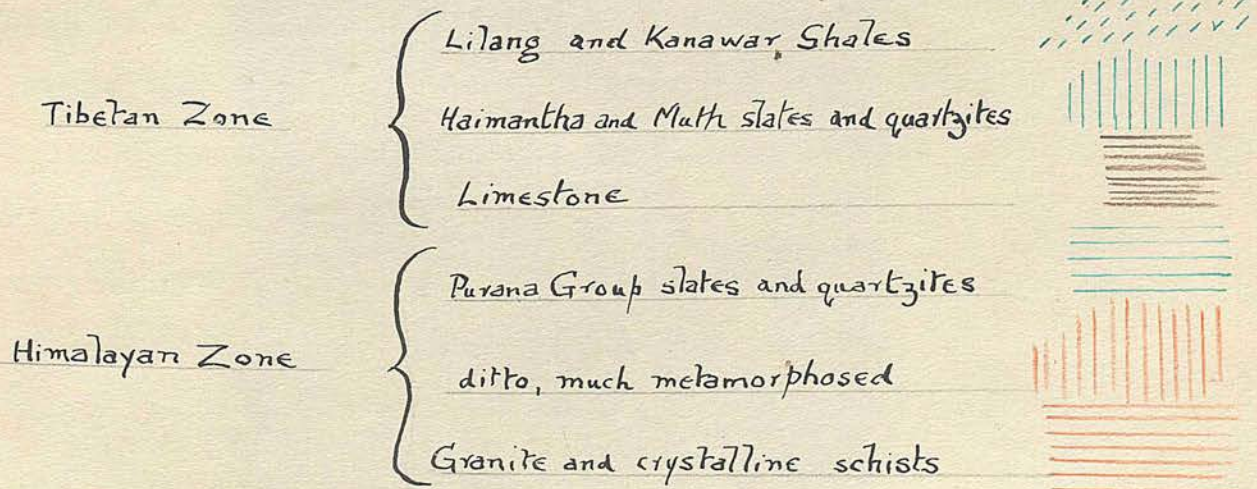 Tibetan Zone
Lilang and Kanawar Shales
Haimantha and Muth slates and quartzites
Limestone
Himalayan Zone
Purana Group slates and quartzites
ditto, much metamorphosed
Granite and crystalline schists